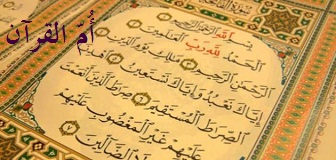 أُمّ القرآن
بِسْمِ ٱللَّهِ ٱلرَّحْمَٰنِ ٱلرَّحِيمِ
ٱلْحَمْدُ لِلَّهِ رَبِّ ٱلْعَٰلَمِينَ
ٱلرَّحْمَٰنِ ٱلرَّحِيمِ مَٰلِكِ يَوْمِ ٱلدِّينِ
إِيَّاكَ نَعْبُدُ وَإِيَّاكَ نَسْتَعِينُ ٱهْدِنَا
ٱلصِّرَٰطَ ٱلْمُسْتَقِيمَ صِرَٰطَ ٱلَّذِينَ أَنْعَمْتَ
عَلَيْهِمْ غَيْرِ ٱلْمَغْضُوبِ عَلَيْهِمْ
وَلَا ٱلضَّآلِّينَ